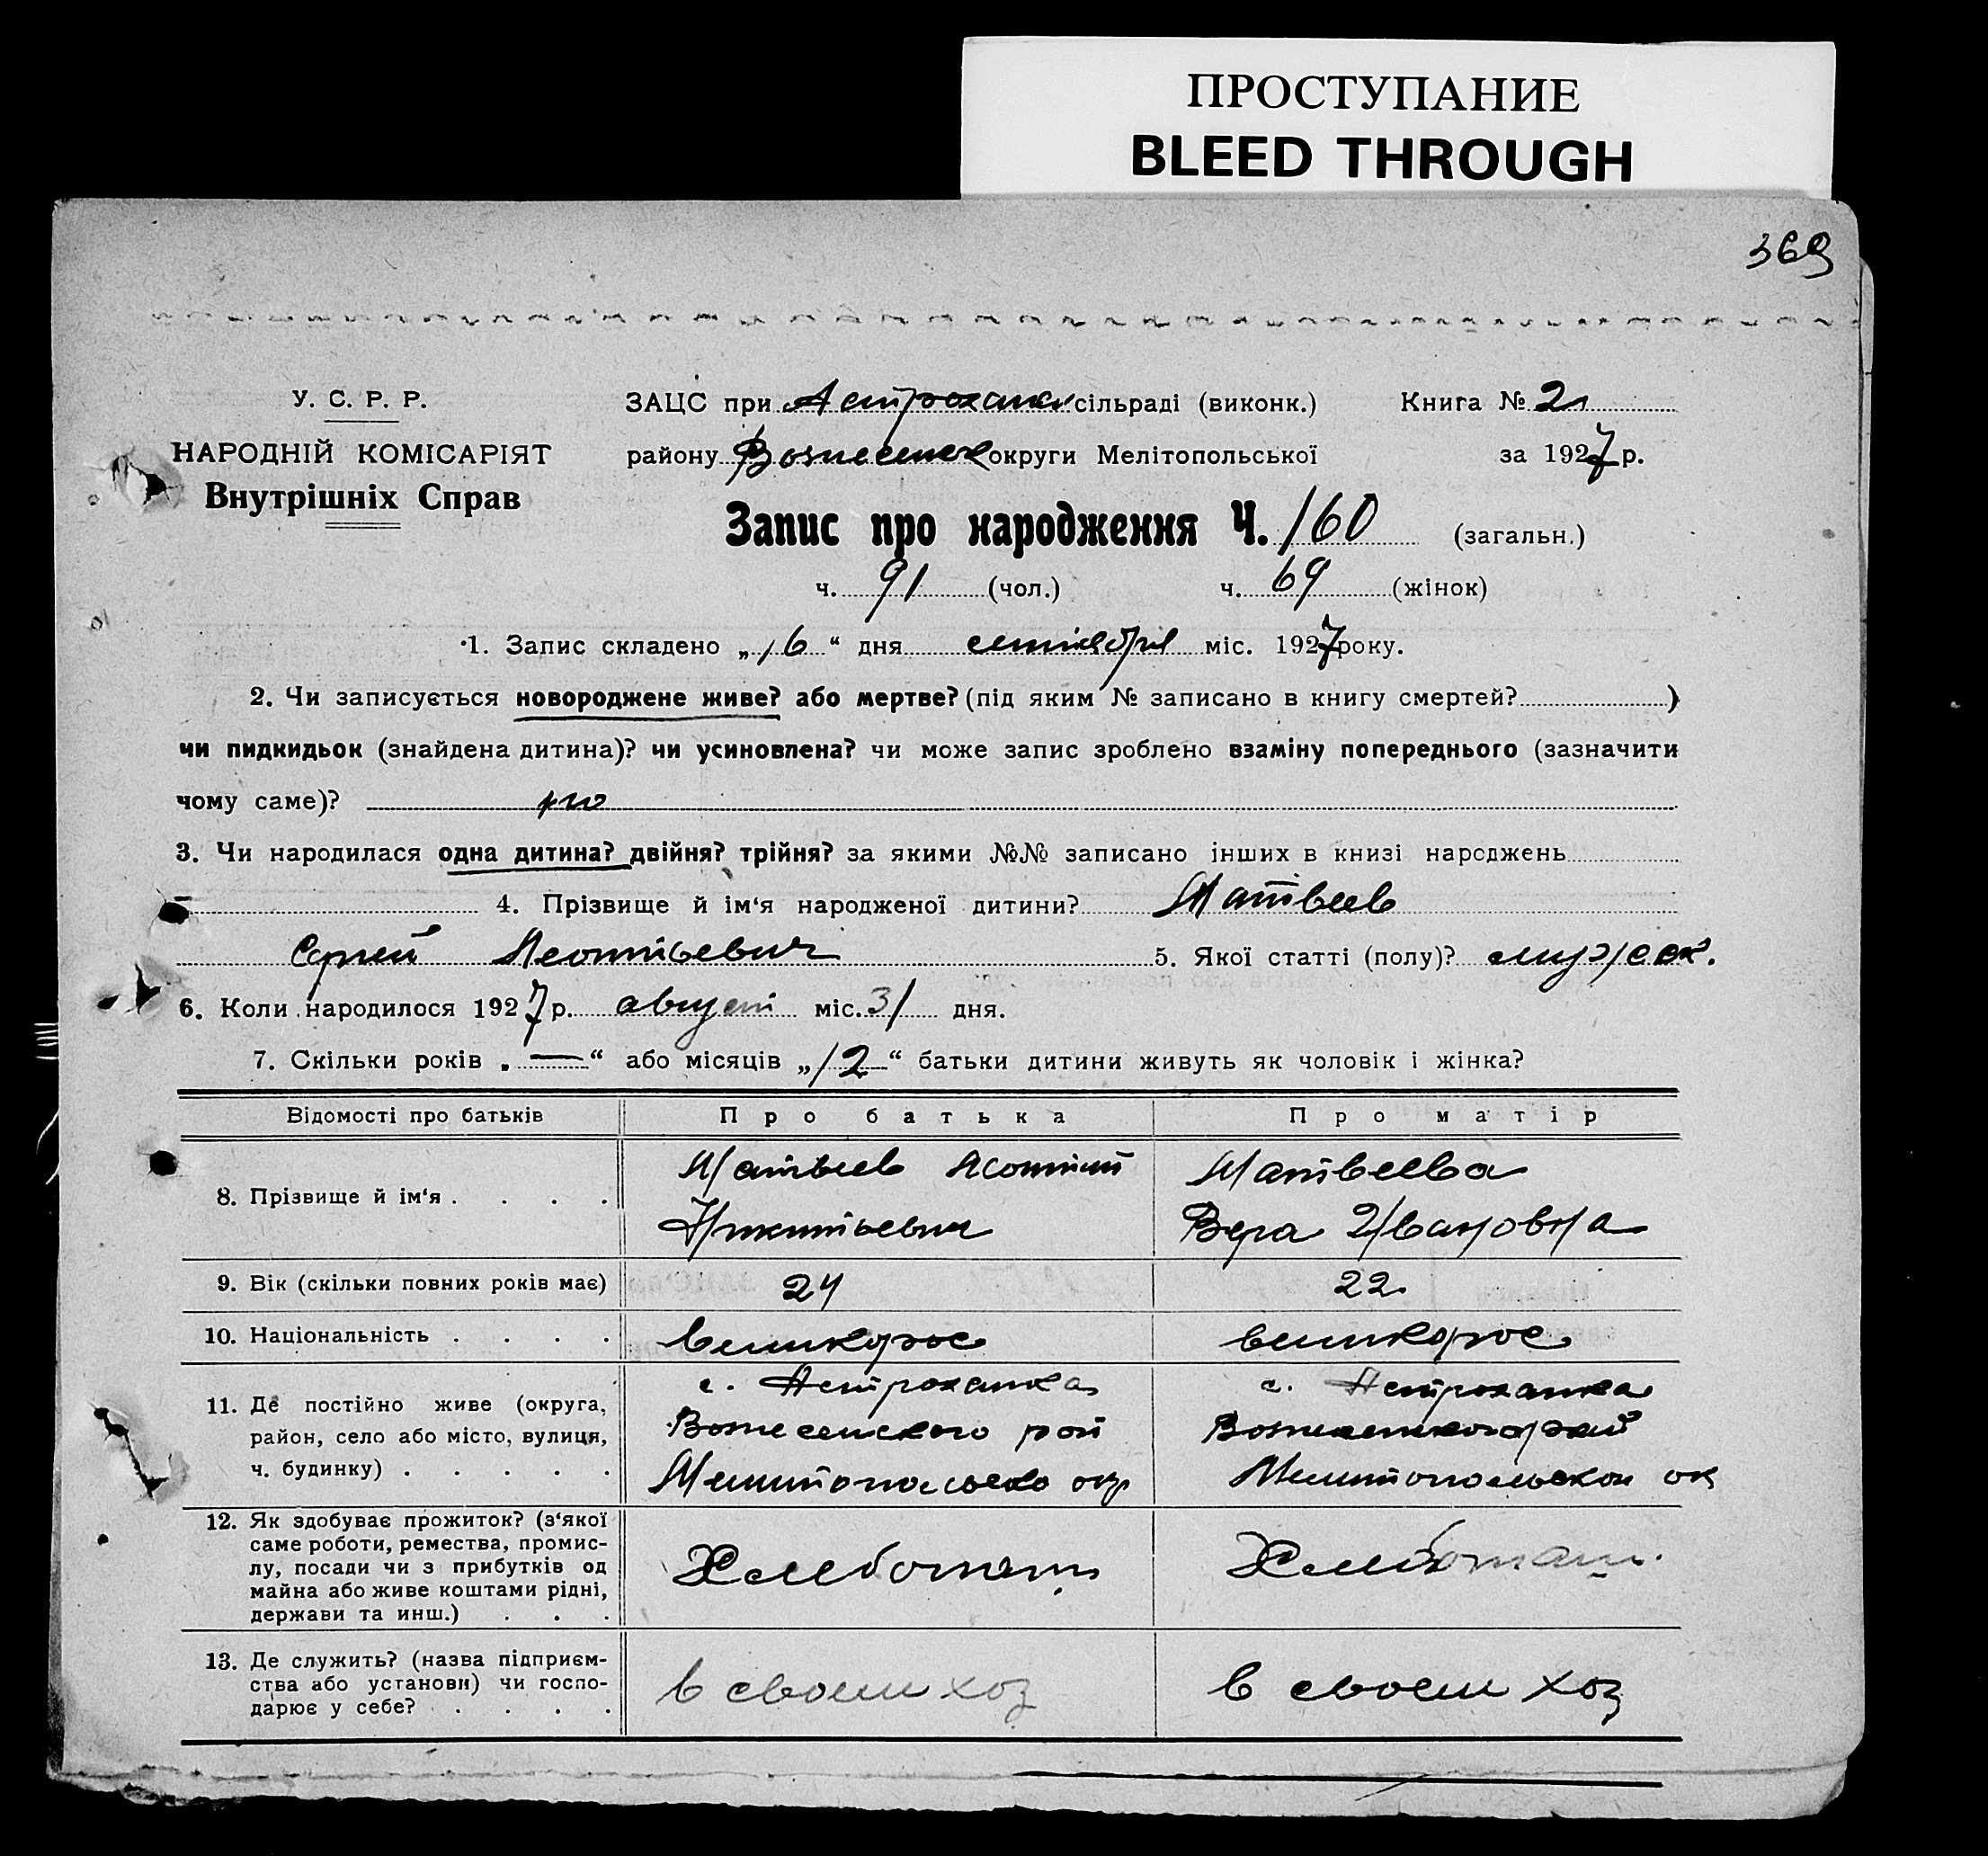 ПРОСТУПАНИЕ
BLEED THROUGH
369
У. С. Р. Р.
НАРОДНІЙ КОМІСАРІЯТ
Внутрішніх Справ
ЗАЦС при Астраханк сільраді (виконк.) Книга № 2
району Вознесенск округи Мелітопольської за 1927 р.
Запис про народження Ч. 160 (загальн.)
ч. 91 (чол.) ч. 69 (жінок)
1. Запис складено „16“ дня сентября міс. 1927 року.
2. Чи записується новороджене живе? або мертве? (під яким № записано в книгу смертей? )
чи пидкидьок (знайдена дитина)? чи усиновлена? чи може запис зроблено взаміну попереднього (зазначити
чому саме)?
3. Чи народилася одна дитина? двійня? трійня? за якими №№ записано інших в книзі народжень
4. Прізвище й ім‘я народженої дитини? Матвеев
Сергей Леонтьевич 5. Якої статті (полу)? мужск.
6. Коли народилося 1927 р. август міс. 31 дня.
7. Скільки років „—“ або місяців „12“ батьки дитини живуть як чоловік і жінка?
Відомості про батьків Про батька Про матір
8. Прізвище й ім‘я . . . . Матвеев Леонтий Никитьевич Матвеева Вера Ивановна
9. Вік (скільки повних років має) 24 22
10. Національність . . . . великорос великорос
11. Де постійно живе (округа, район, село або місто, вулиця, ч. будинку) . . . . . с. Астраханка Вознесенского рай Мелитопольско окр с. Астраханка Вознесенского рай Мелитопольскои ок
12. Як здобуває прожиток? (з‘якої саме роботи, ремества, промислу, посади чи з прибутків од майна або живе коштами рідні, держави та инш.) . . . Хлебопашц Хлебопаш.
13. Де служить? (назва підприємства або установи) чи господарює у себе? . . . . в своем хоз в своем хоз